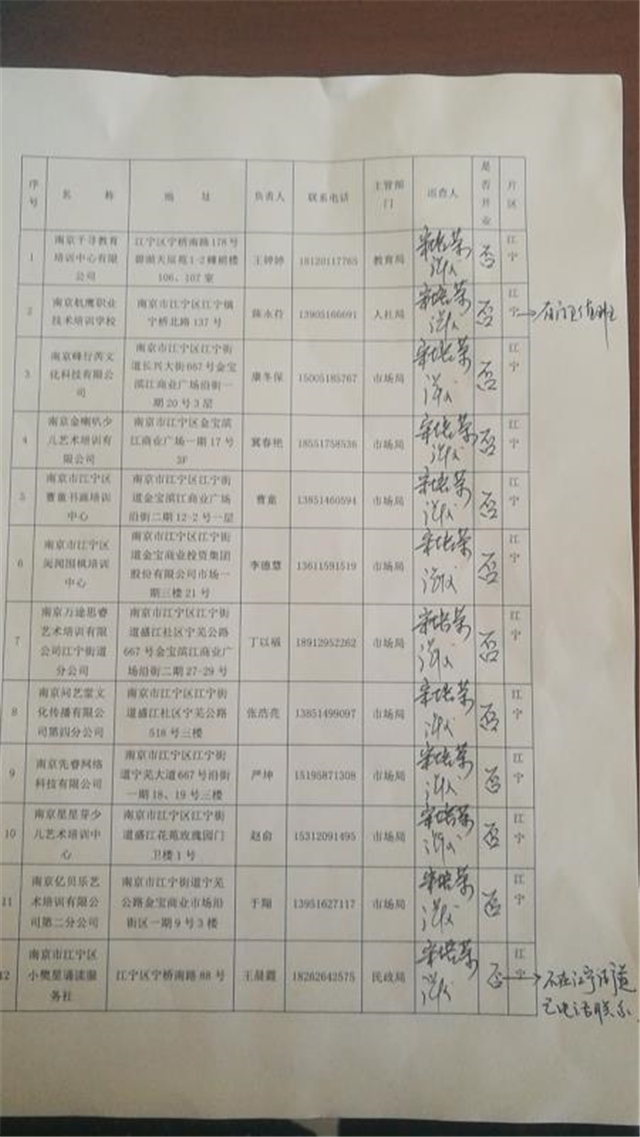 序号 名 称 地 址 负责人 联系电话 主管部门 巡查人 是否开业 片区
1 南京千寻教育培训中心有限公司 江宁区宁桥南路178号碧湖天辰苑1-2幢裙楼106、107室 王婷婷 18120117765 教育局 否 江宁
2 南京航鹰职业技术培训学校 南京市江宁区江宁镇宁桥北路137号 陈永荷 13905166691 人社局 否 江宁 有门卫值班
3 南京峰行芮文化科技有限公司 南京市江宁区江宁街道长兴大街667号金宝滨江商业广场沿街一期20号3层 康冬保 15005185767 市场局 否 江宁
4 南京金喇叭少儿艺术培训有限公司 南京市江宁区金宝滨江商业广场一期17号3F 冀春艳 18551758536 市场局 否 江宁
5 南京市江宁区曹童书画培训中心 南京市江宁区江宁街道金宝滨江商业广场沿街二期12-2号一层 曹童 13851460594 市场局 否 江宁
6 南京市江宁区闵闵围棋培训中心 南京市江宁区江宁街道金宝商业投资集团股份有限公司市场一期三楼21号 李德慧 13611591519 市场局 否 江宁
7 南京万途思睿艺术培训有限公司江宁街道分公司 南京市江宁区江宁街道盛江社区宁芜公路667号金宝滨江商业广场沿街二期27-29号 丁以福 18912952262 市场局 否 江宁
8 南京问艺堂文化传播有限公司第四分公司 南京市江宁区江宁街道盛江社区宁芜公路518号三楼 张浩亮 13851499097 市场局 否 江宁
9 南京先睿网络科技有限公司 南京市江宁区江宁街道宁芜大道667号沿街一期18、19号三楼 严坤 15195871308 市场局 否 江宁
10 南京星星芽少儿艺术培训中心 南京市江宁区江宁街道盛江花苑玫瑰园门卫楼1号 赵俞 15312091495 市场局 否 江宁
11 南京亿贝乐艺术培训有限公司第二分公司 南京市江宁街道宁芜公路金宝商业市场沿街区一期9号3楼 于翔 13951627117 市场局 否 江宁
12 南京市江宁区小樊星诵读服务社 江宁区宁桥南路88号 王晨霞 18262642575 民政局 否 江宁 不在江宁街道
已电话联系